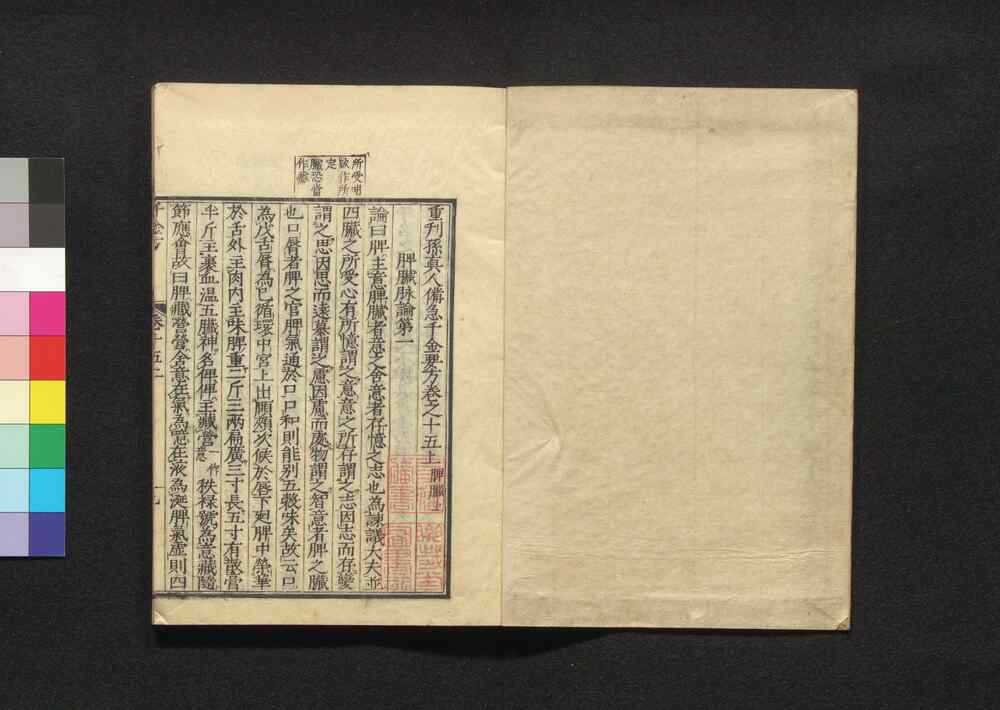 重刋孫真人備急千金要方卷之十五上 脾臓上
脾臓脉論第一
論曰脾主意脾臓者意之舍意者存憶之志也為諌議大夫並
四臓之所受心有所憶謂之意意之所存謂之志因志而存變
謂之思因思而遠慕謂之慮因慮而處物謂之智意者脾之臓
也口唇者脾之官脾氣通於口口和則能别五糓味矣故云口
為戊舌唇為巳循環中宮上出頥頰次候於唇下廻脾中榮華
於舌外主肉内主味脾重二斤三兩扁廣三寸長五寸有散膏
半斤主裹血温五臓神名俾俾主藏營一作意秩禄號為意藏隨
節應會故曰脾藏營營舍意在氣為噫在液為涎脾氣虚則四
卷十五上
所受
缺作所
定
臓恐當
作癥